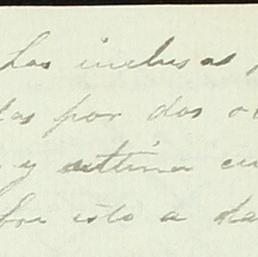 Las inclusas
las por dos o
y última cu
bre esto a da